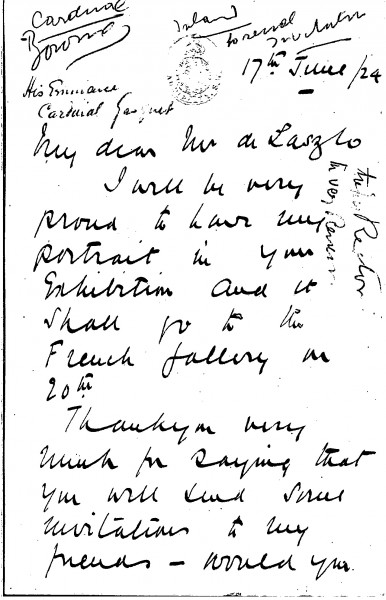 Cardinal
Bourne
Inland
to send
Invitation
17th June /24
His Eminence
Cardinal Gasquet
My dear Mr de Laszlo
I will be very
proud to have my
portrait in your
Exhibition and it
shall go to the
French Gallery on
20th
Thank you very
much for saying that
you will send some
invitations to my
friends – would you
the Rector